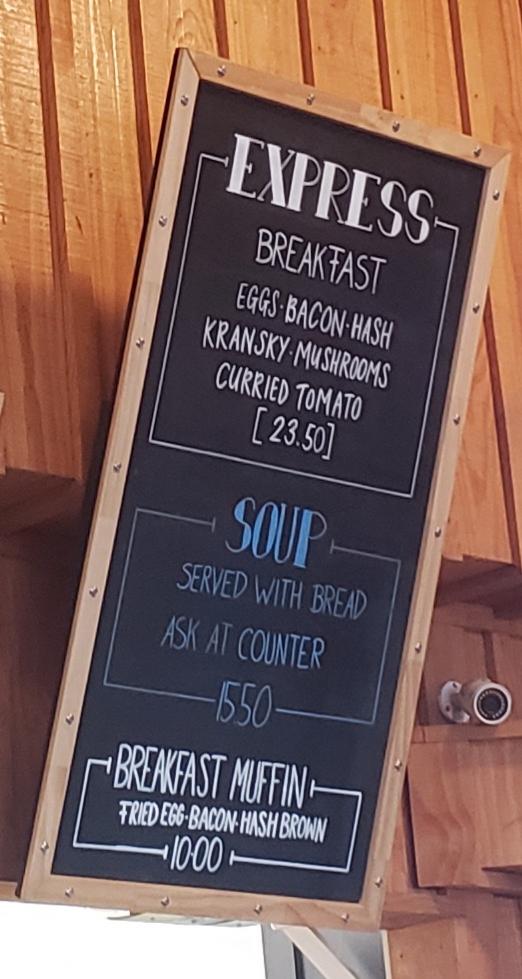 EXPRESS
BREAKFAST
EGGS·BACON·HASH
KRANSKY·MUSHROOMS
CURRIED TOMATO
[23.50]
SOUP
SERVED WITH BREAD
ASK AT COUNTER
15.50
BREAKFAST MUFFIN
FRIED EGG·BACON·HASH BROWN
10·00